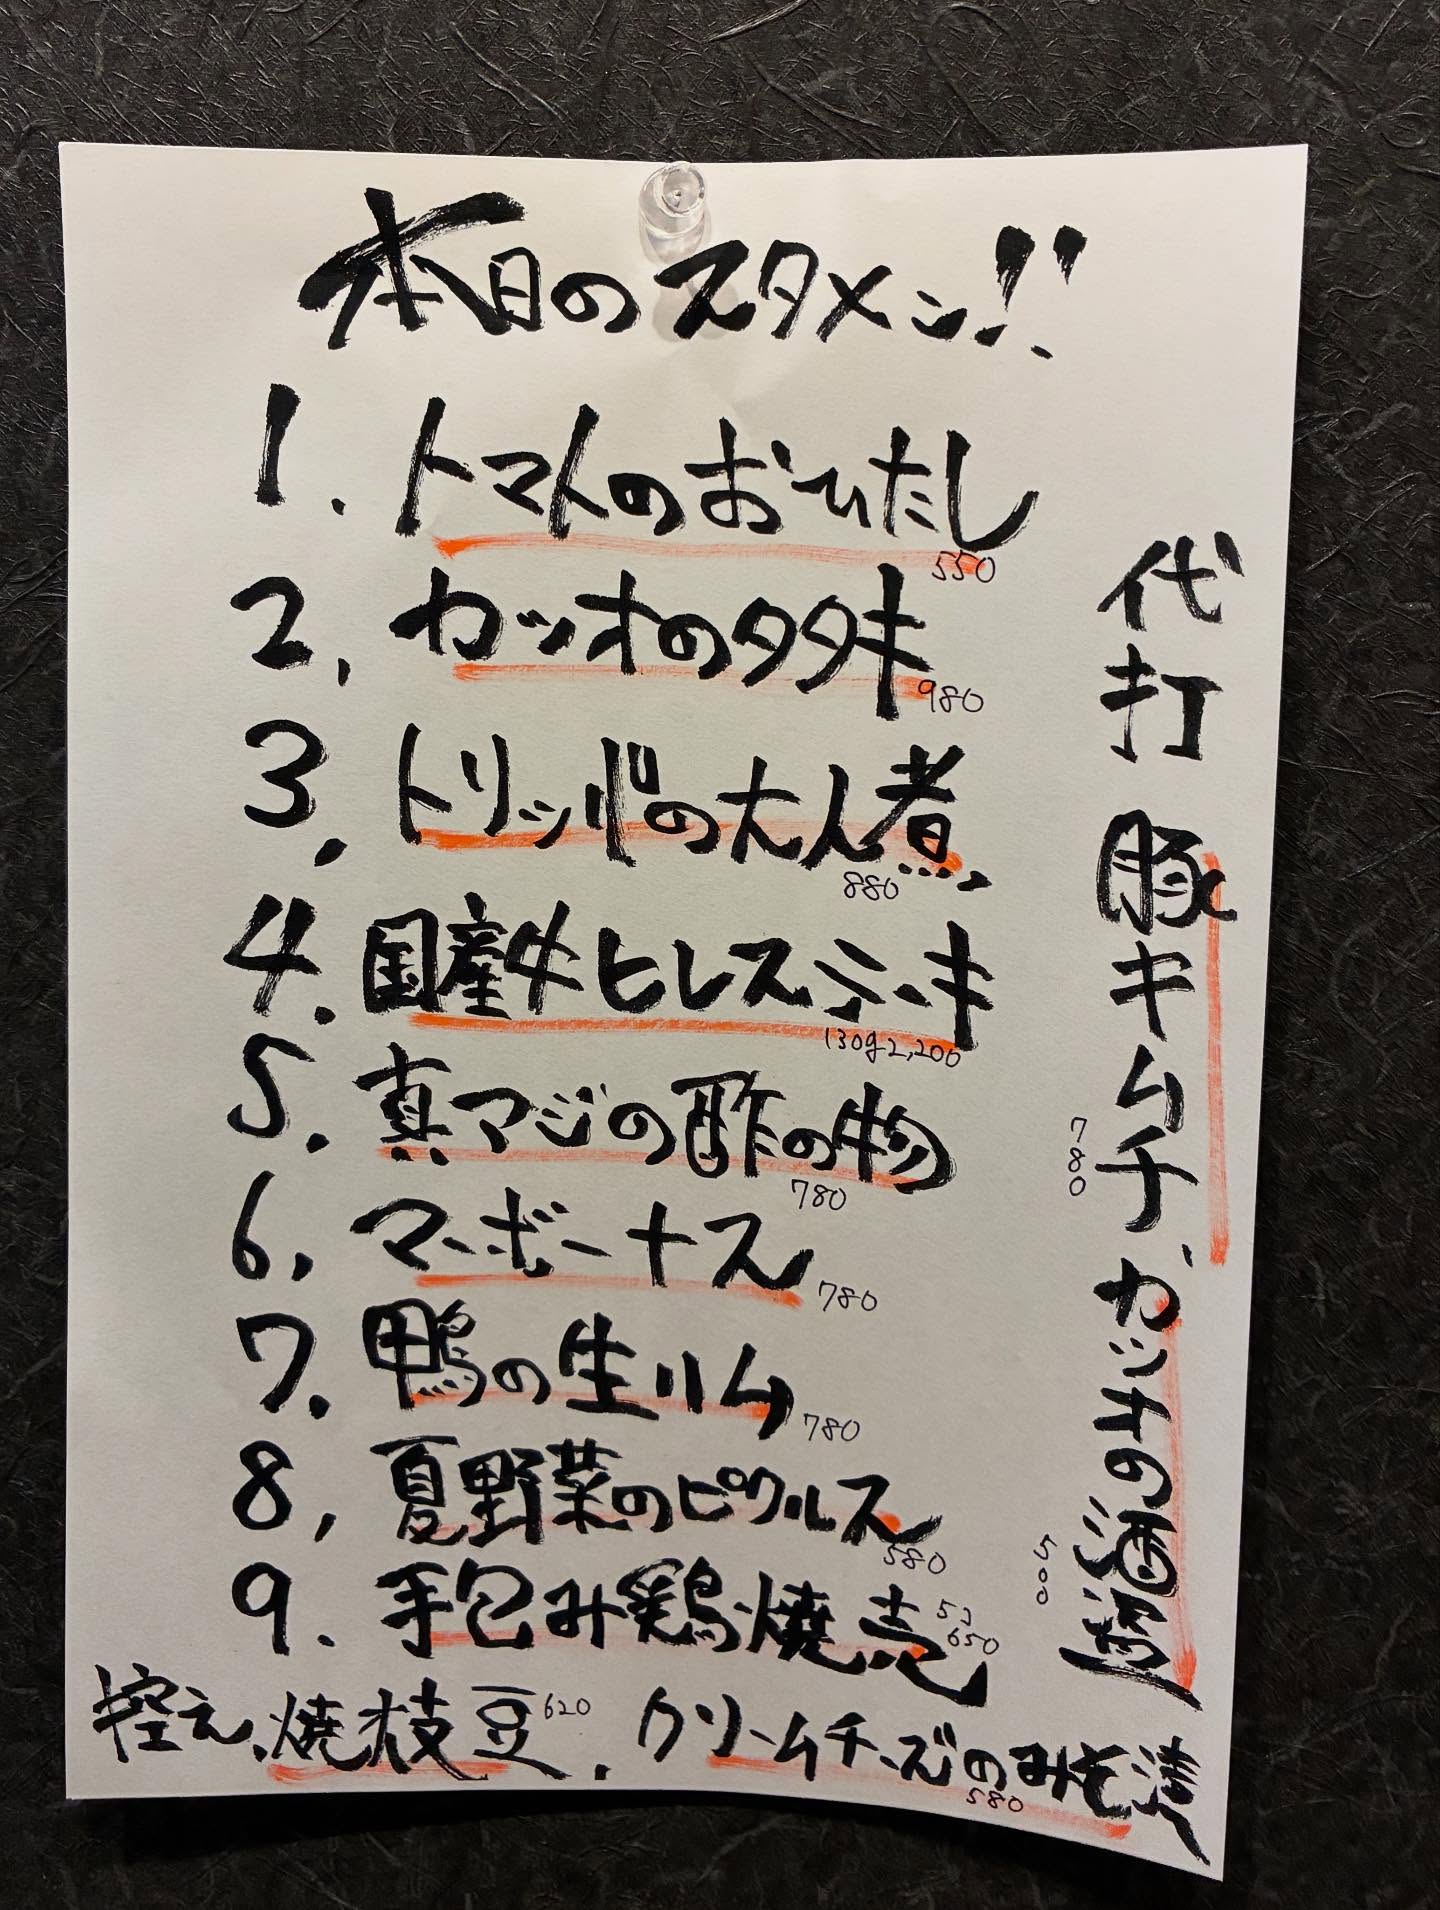 本日のスタメン!!
1. トマトのおひたし
550
2. カツオのタタキ
980
3. トリッパの大人煮
880
4. 国産牛ヒレステーキ
130g2,200
5. 真アジの酢の物
780
6. マーボーナス
780
7. 鴨の生ハム
780
8. 夏野菜のピクルス
580
9. 手包み鶏焼売
5コ
650
代打 豚キムチ、カツオの酒盗
780
500
控え、焼枝豆620、クリームチーズのみそ漬
580